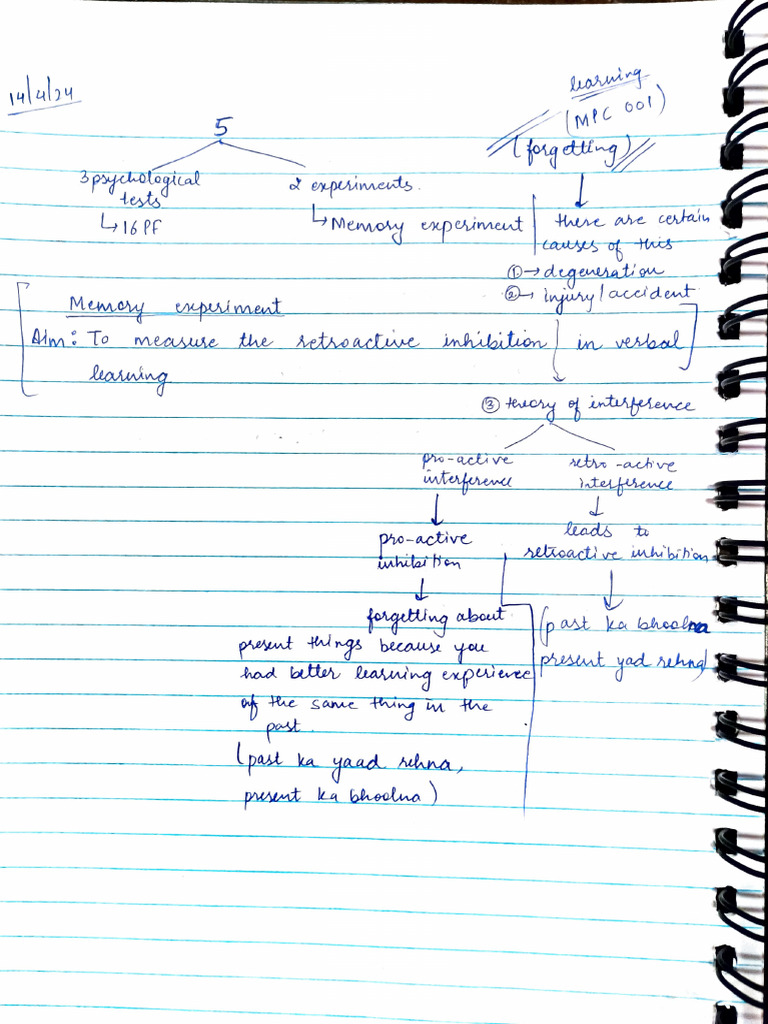 14/4/24
learning
(MPC 001)
(forgetting)
5
3 psychological
tests
↳ 16 PF
2 experiments.
↳ Memory experiment
↓
there are certain
causes of this
① → degeneration
② → injury/accident
Memory experiment
Aim: To measure the retroactive inhibition in verbal
learning
③ theory of interference
pro-active
interference
↓
pro-active
inhibition
↓
forgetting about
present things because you
had better learning experience
of the same thing in the
past.
(past ka yaad rehna,
present ka bhoolna)
retro-active
interference
↓
leads to
retroactive inhibition
↓
(past ka bhoolna
present yad rehna)